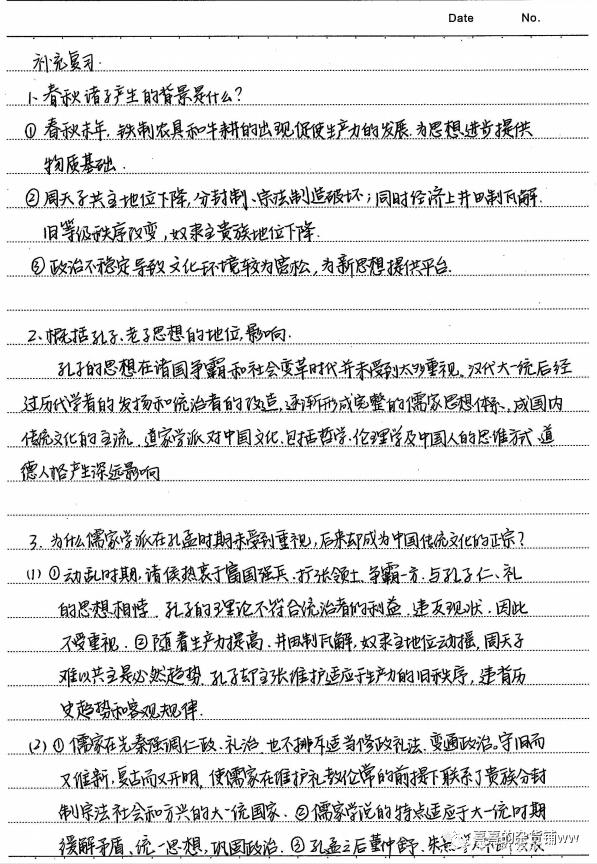 Date No.
补充复习.
1、春秋诸子产生的背景是什么?
① 春秋末年,铁制农具和牛耕的出现促使生产力的发展,为思想进步提供
物质基础.
② 周天子共主地位下降,分封制、宗法制遭破坏;同时经济上井田制瓦解.
旧等级秩序改变,奴隶主贵族地位下降.
③ 政治不稳定导致文化环境较为宽松,为新思想提供平台.
2、概括孔子、老子思想的地位、影响.
孔子的思想在诸国争霸和社会变革时代并未受到太多重视。汉代大一统后经
过历代学者的发扬和统治者的改造,逐渐形成完整的儒家思想体系、成国内
传统文化的主流。道家学派对中国文化,包括哲学、伦理学及中国人的思维方式、道
德人格产生深远影响
3、为什么儒家学派在孔孟时期未受到重视,后来却成为中国传统文化的正宗?
(1) ① 动乱时期,诸侯热衷于富国强兵、扩张领土、争霸一方,与孔子仁、礼
的思想相悖。孔子的理论不符合统治者的利益、违反现状,因此
不受重视。② 随着生产力提高、井田制瓦解,奴隶主地位动摇,周天子
难以共主是必然趋势,孔子却主张维护适应于生产力的旧秩序,违背历
史趋势和客观规律.
(2) ① 儒家在先秦强调仁政、礼治,也不排斥适当修改礼法、变通政治。守旧而
又维新,复古而又开明,使儒家在维护礼教伦常的前提下联系了贵族分封
制宗法社会和方兴的大一统国家。② 儒家学说的特点适应于大一统时期
缓解矛盾、统一思想,巩固政治。③ 孔孟之后董仲舒、朱
喜喜的杂货铺www